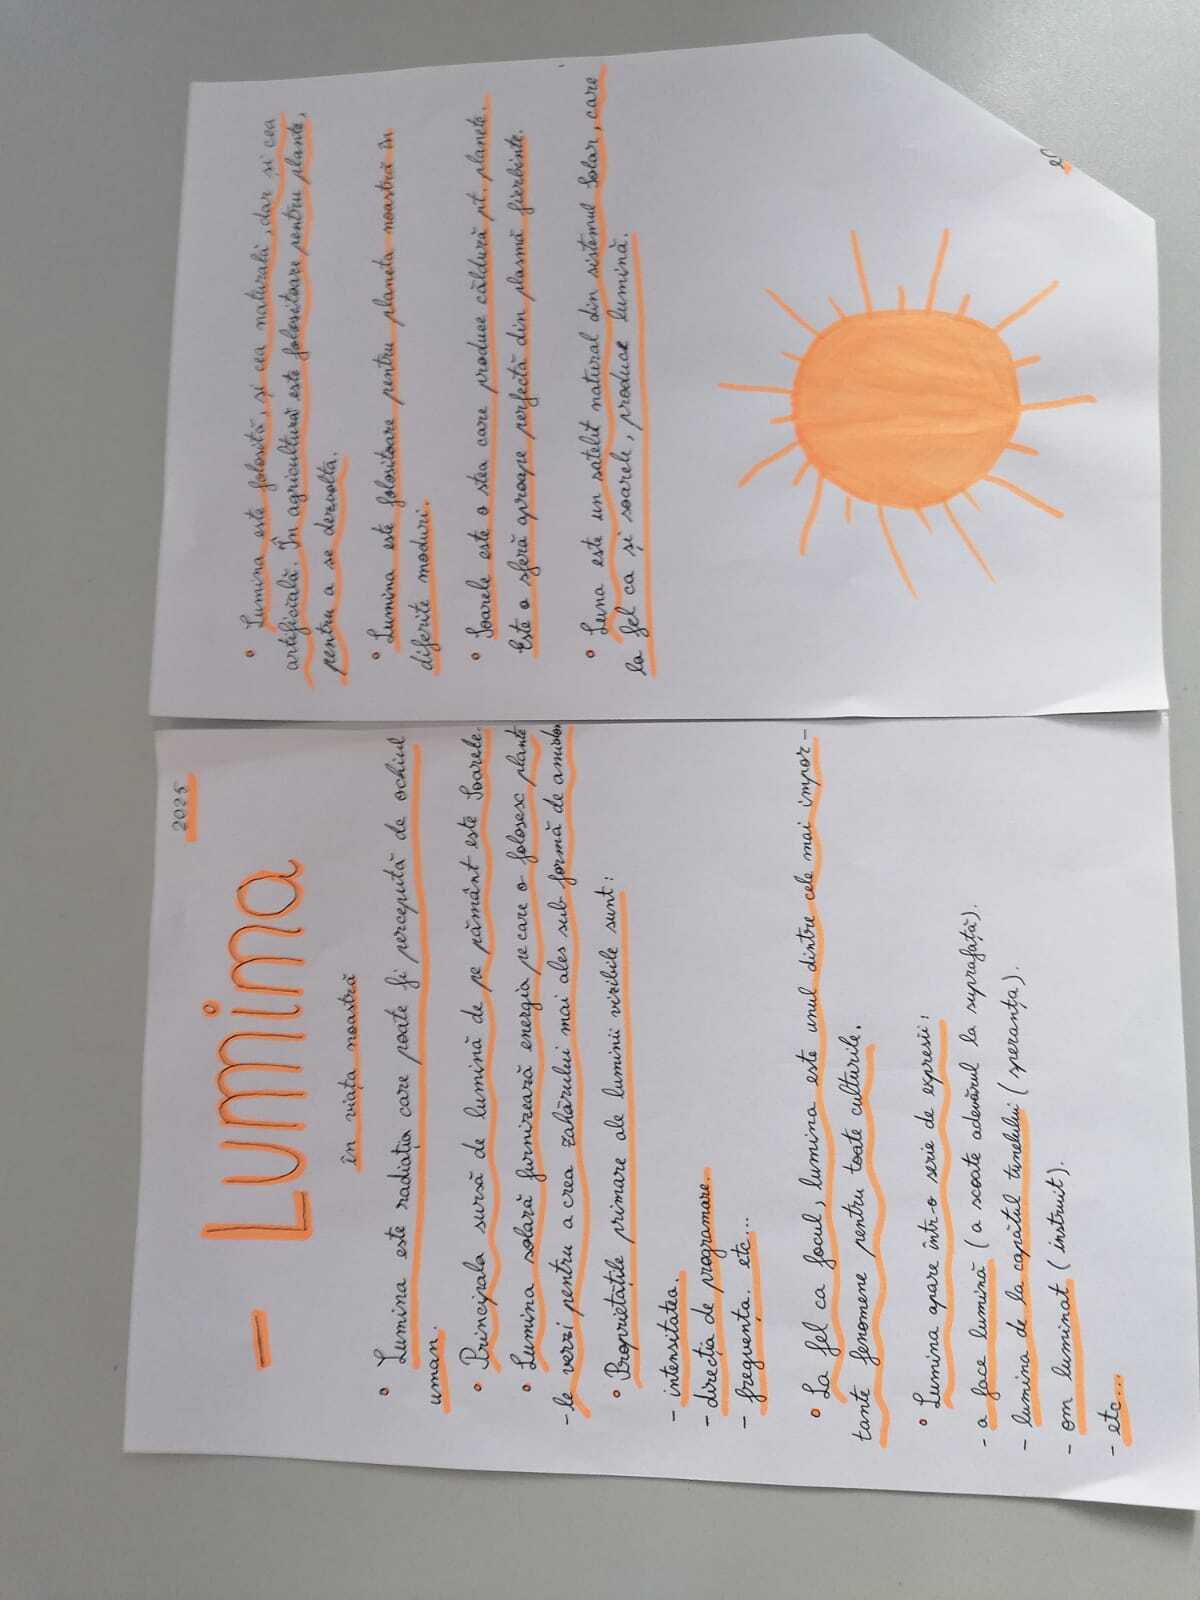 2025
- Lumina
în viața noastră
• Lumina este radiația care poate fi percepută de ochiul
uman.
• Principala sursă de lumină de pe pământ este Soarele.
• Lumina solară furnizează energia pe care o folosesc plante
-le verzi pentru a crea zahărului mai ales sub formă de amidon
• Proprietățile primare ale luminii vizibile sunt:
- intensitatea.
- direcția de programare.
- freguența. etc...
• La fel ca focul, lumina este unul dintre cele mai impor-
tante fenomene pentru toate culturile.
• Lumina apare într-o serie de expresii:
- a face lumină (a scoate adevărul la suprafață).
- lumina de la capătul tunelului (speranța).
- om luminat (instruit).
- etc...
• Lumina este folosită, și cea naturală, dar și cea
artificială. În agricultură este folositoare pentru plante,
pentru a se dezvolta.
• Lumina este folositoare pentru planeta noastră în
diferite moduri.
• Soarele este o stea care produce căldură pt. planete.
Este o sferă aproape perfectă din plasmă fierbinte.
• Luna este un satelit natural din sistemul Solar, care
la fel ca și soarele, produce lumină.